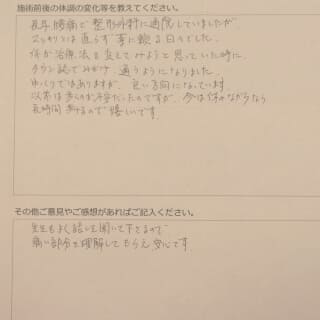 施術前後の体調の変化等を教えてください。
長年腰痛で整形外科に通院していましたが
スッキリとは直らず薬に頼る日々でした。
何か治療法を変えてみようと思っていた時に
タウン誌でみかけ、通うようになりました。
ゆっくりではありますが、良い方向になっています。
以前は歩くのが不安だったのですが、今は休みながらなら
長時間歩けるので嬉しいです。
その他ご意見やご感想があればご記入ください。
先生もよく話しを聞いて下さるので
痛い部分を理解してもらえ安心です